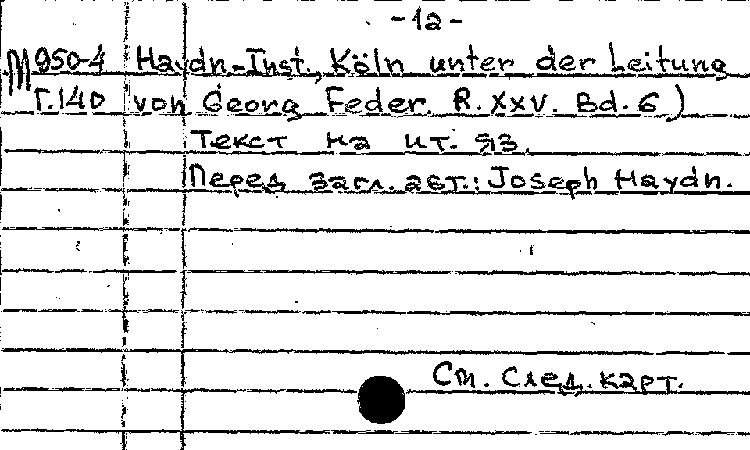 -12-
М 950-4 Haydn-Inst., Köln unter der Leitung
Г.140 von Georg Feder. R. XXV. Bd. 6)
Текст на ит. яз.
Перед загл. авт.: Joseph Haydn.
См. След. карт.